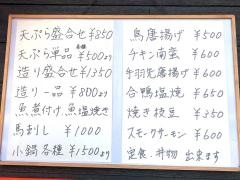 天ぷら盛合せ ¥850
天ぷら単品 各種 ¥500より
造り盛合せ ¥1350
造り一品 ¥800
魚煮付け 魚塩焼き
馬刺し ¥1000
小鍋各種 ¥1500より
鳥唐揚げ ¥500
チキン南蛮 ¥600
手羽先唐揚げ ¥600
合鴨塩焼き ¥650
焼き枝豆 ¥350
スモークサーモン ¥600
定食、丼物 出来ます